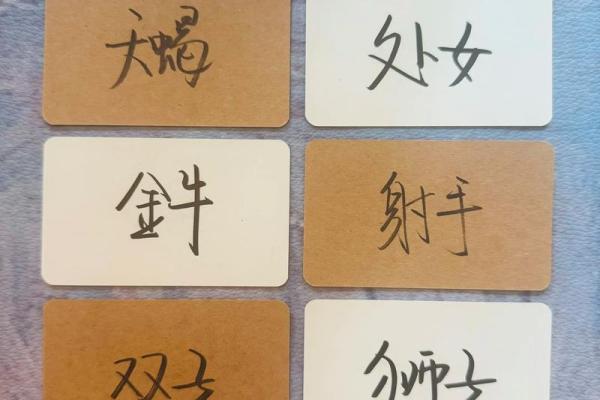 天蝎 处女
金牛 射手
双子 狮子